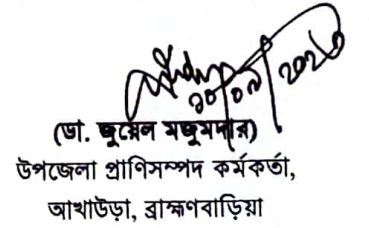 (ডা. জুয়েল মজুমদার)
উপজেলা প্রাণিসম্পদ কর্মকর্তা,
আখাউড়া, ব্রাহ্মণবাড়িয়া